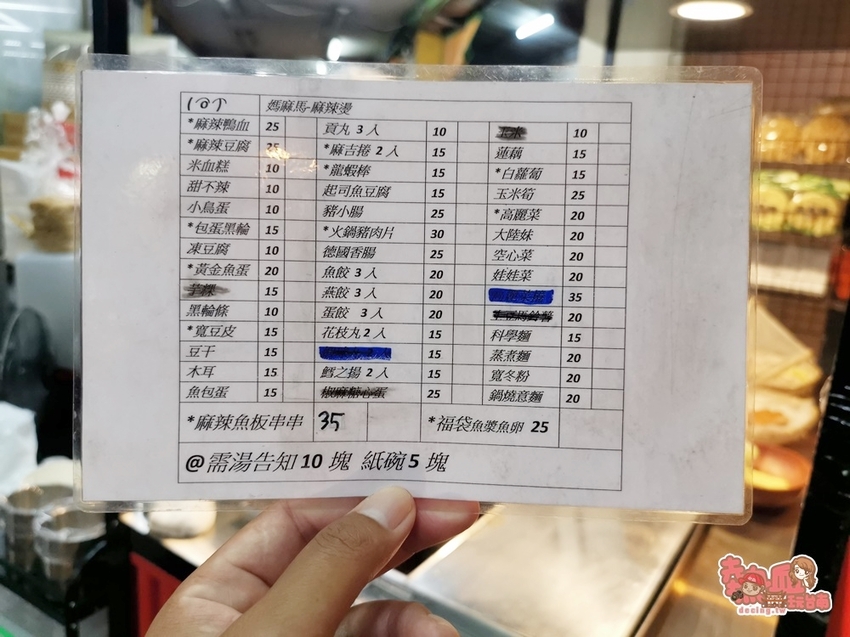 媽麻馬-麻辣燙
*麻辣鴨血 25 貢丸 3 入 10 10
*麻辣豆腐 25 *麻吉捲 2 入 15 蓮藕 15
米血糕 10 *龍蝦棒 15 *白蘿蔔 15
甜不辣 10 起司魚豆腐 15 玉米筍 25
小鳥蛋 10 豬小腸 25 *高麗菜 20
*包蛋黑輪 15 *火鍋豬肉片 30 大陸妹 20
凍豆腐 10 德國香腸 25 空心菜 20
*黃金魚蛋 20 魚餃 3 入 20 娃娃菜 20
15 燕餃 3 入 20 35
黑輪條 10 蛋餃 3 入 20 20
*寬豆皮 15 花枝丸 2 入 15 科學麵 15
豆干 15 15 蒸煮麵 20
木耳 15 鱈之揚 2 入 15 寬冬粉 20
魚包蛋 15 25 鍋燒意麵 20
*麻辣魚板串串 35 *福袋魚漿魚卵 25
@需湯告知 10 塊 紙碗 5 塊
熱血玩台南
decing.tw